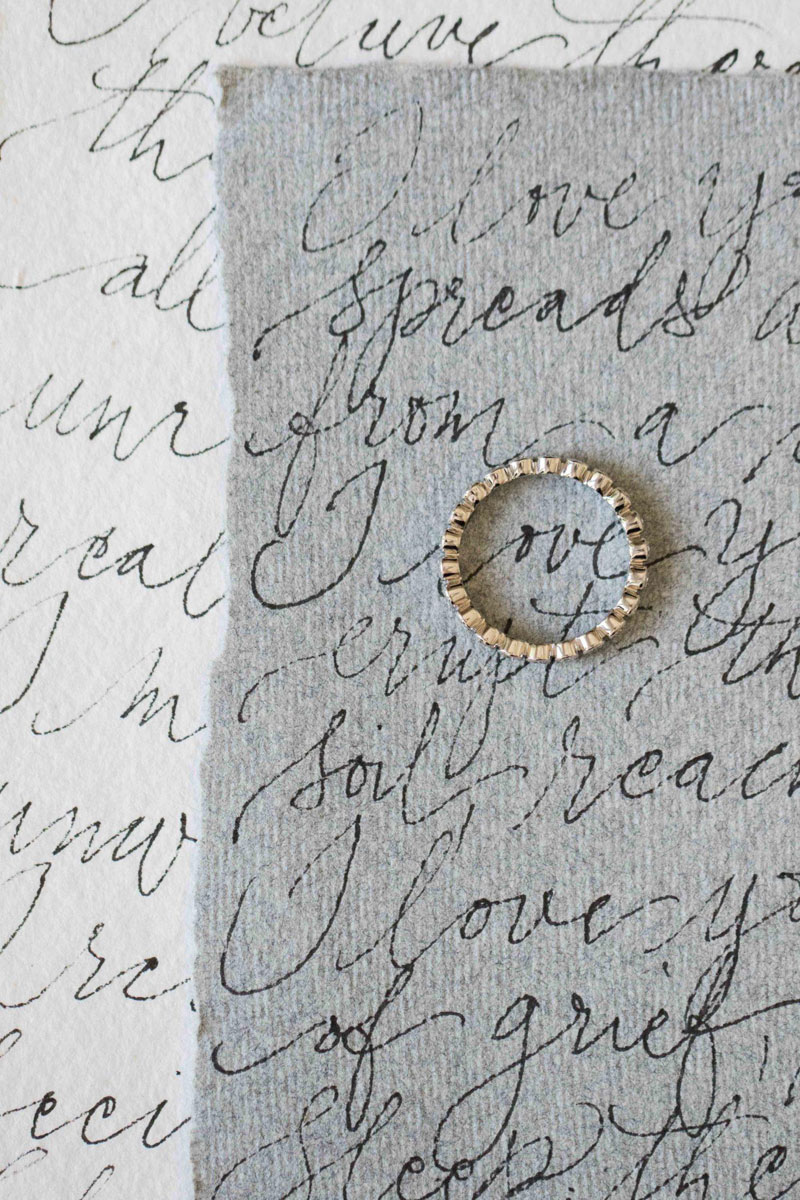 believe there
th
all
unr
real
I'm
unw
I re
beci
I love yo
spreads a
from a
I love y
erupt th
soil reach
I love yo
of grief
sleep the